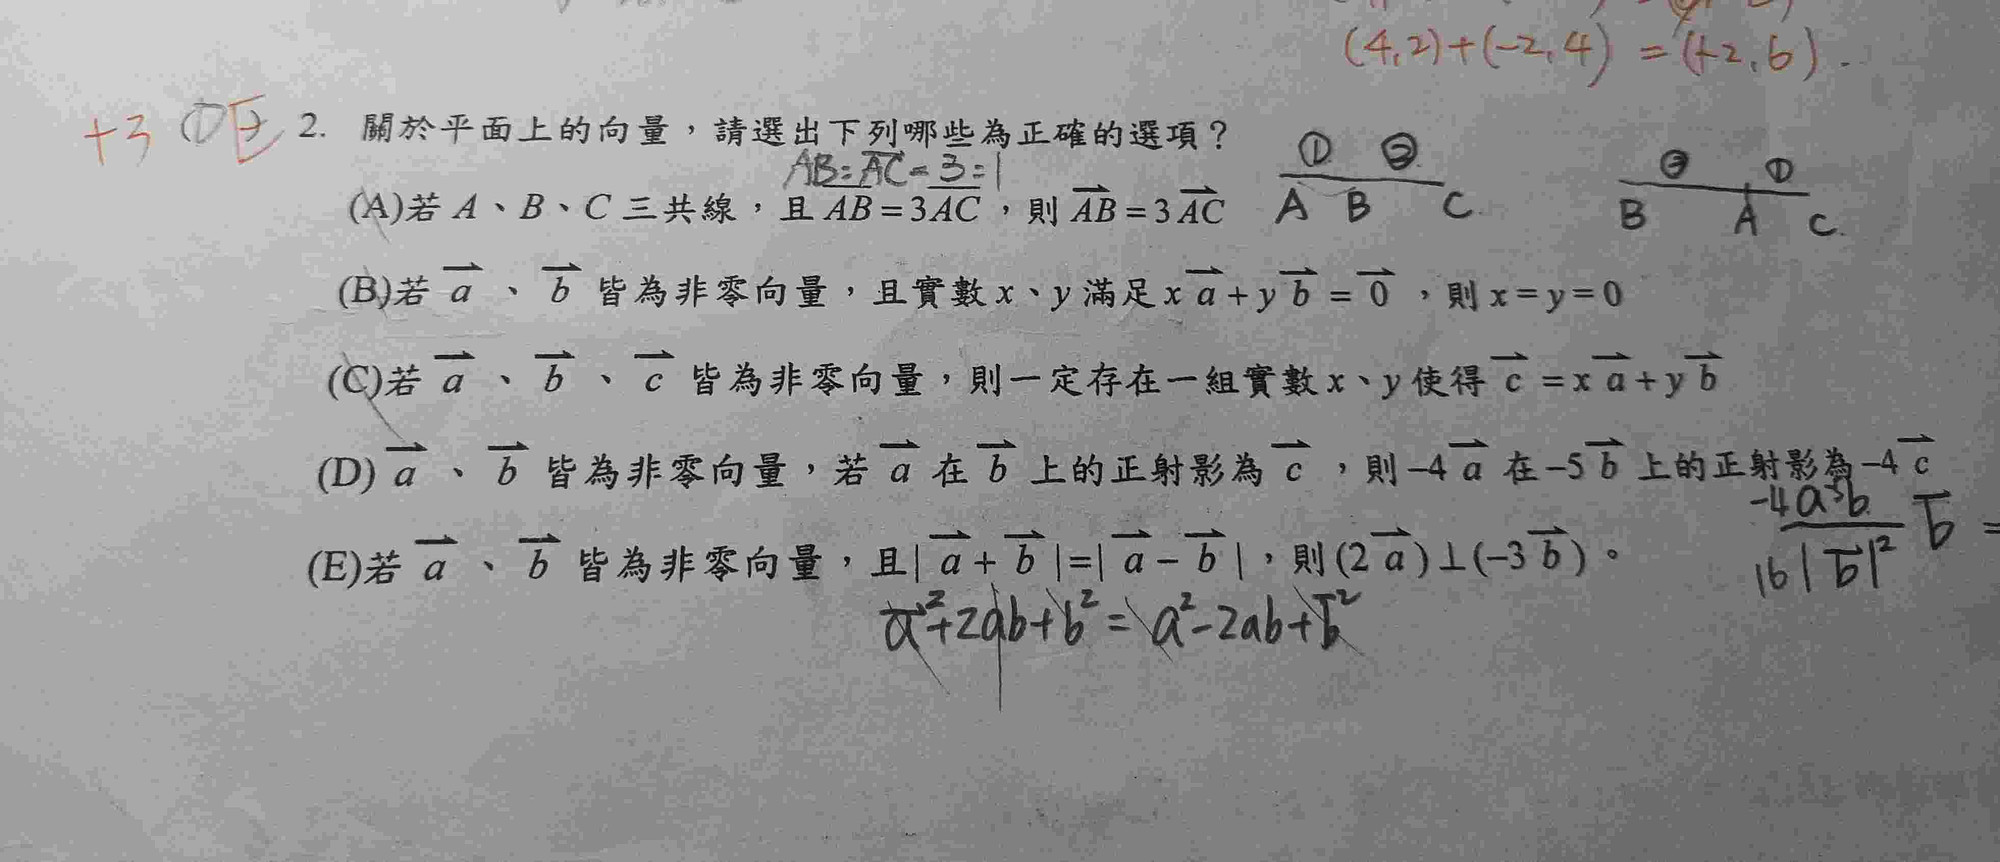 (4,2)+(-2,4) = (+2,6).
+3 DE 2. 關於平面上的向量，請選出下列哪些為正確的選項？
AB:AC=3=1
① ②
③ ①
(A)若 A、B、C 三共線，且 AB=3AC，則 AB=3AC
A B C.
B A C.
(B)若 a、b 皆為非零向量，且實數 x、y 滿足 x a + y b = 0，則 x=y=0
(C)若 a、b、c 皆為非零向量，則一定存在一組實數 x、y 使得 c = x a + y b
(D) a、b 皆為非零向量，若 a 在 b 上的正射影為 c，則 -4 a 在 -5 b 上的正射影為 -4 c
(E)若 a、b 皆為非零向量，且| a + b |=| a - b |，則(2 a)⊥(-3 b)。
16|b|² b =
a²+2ab+b² = a²-2ab+b²